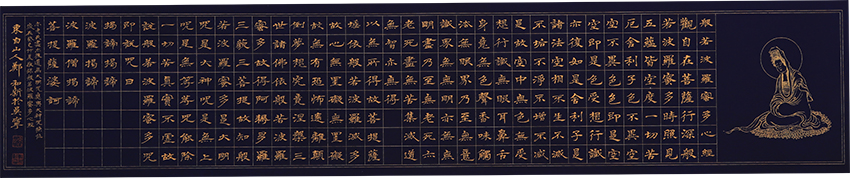 般若波羅蜜多心經
觀自在菩薩行深般
若波羅蜜多時照見
五蘊皆空度一切苦
厄舍利子色不異空
空不異色色即是空
空即是色受想行識
亦復如是舍利子是
諸法空相不生不滅
不垢不淨不增不減
是故空中無色無受
想行識無眼耳鼻舌
身意無色聲香味觸
法無眼界乃至無意
識界無無明亦無無
明盡乃至無老死亦無
老死盡無苦集滅道
無智亦無得
以無所得故菩提薩
埵依般若波羅蜜多
故心無罣礙無罣礙
故無有恐怖遠離顛
倒夢想究竟涅槃三
世諸佛依般若波羅
蜜多故得阿耨多羅
三藐三菩提故知般
若波羅蜜多是大神
咒是大明咒是無上
咒是無等等咒能除
一切苦真實不虛故
說般若波羅蜜多咒
即說咒曰
揭諦揭諦
波羅揭諦
波羅僧揭諦
菩提薩婆訶
東白山人鄭